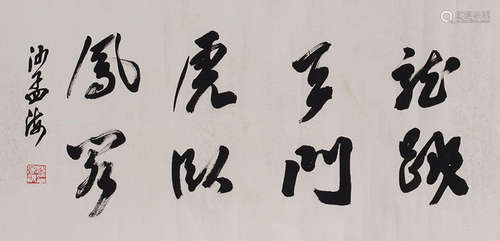 龍跳
天門
虎臥
鳳閣
沙孟海